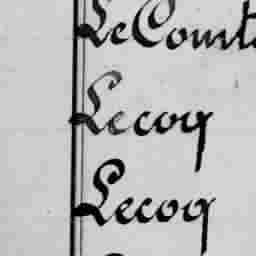 LeComte
Lecoq
Lecoq